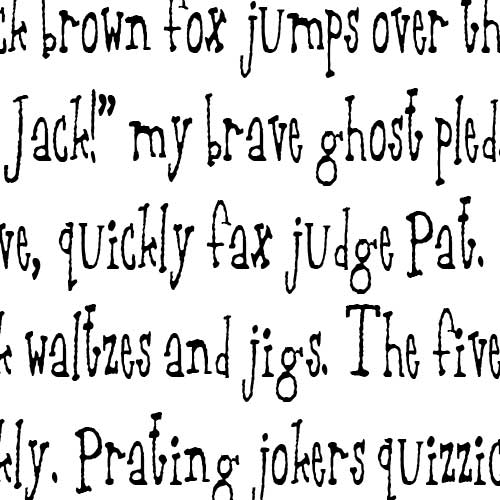 ck brown fox jumps over th
Jack!” my brave ghost pled
ve, quickly fax judge Pat.
k waltzes and jigs. The five
kly. Prating jokers quizzic